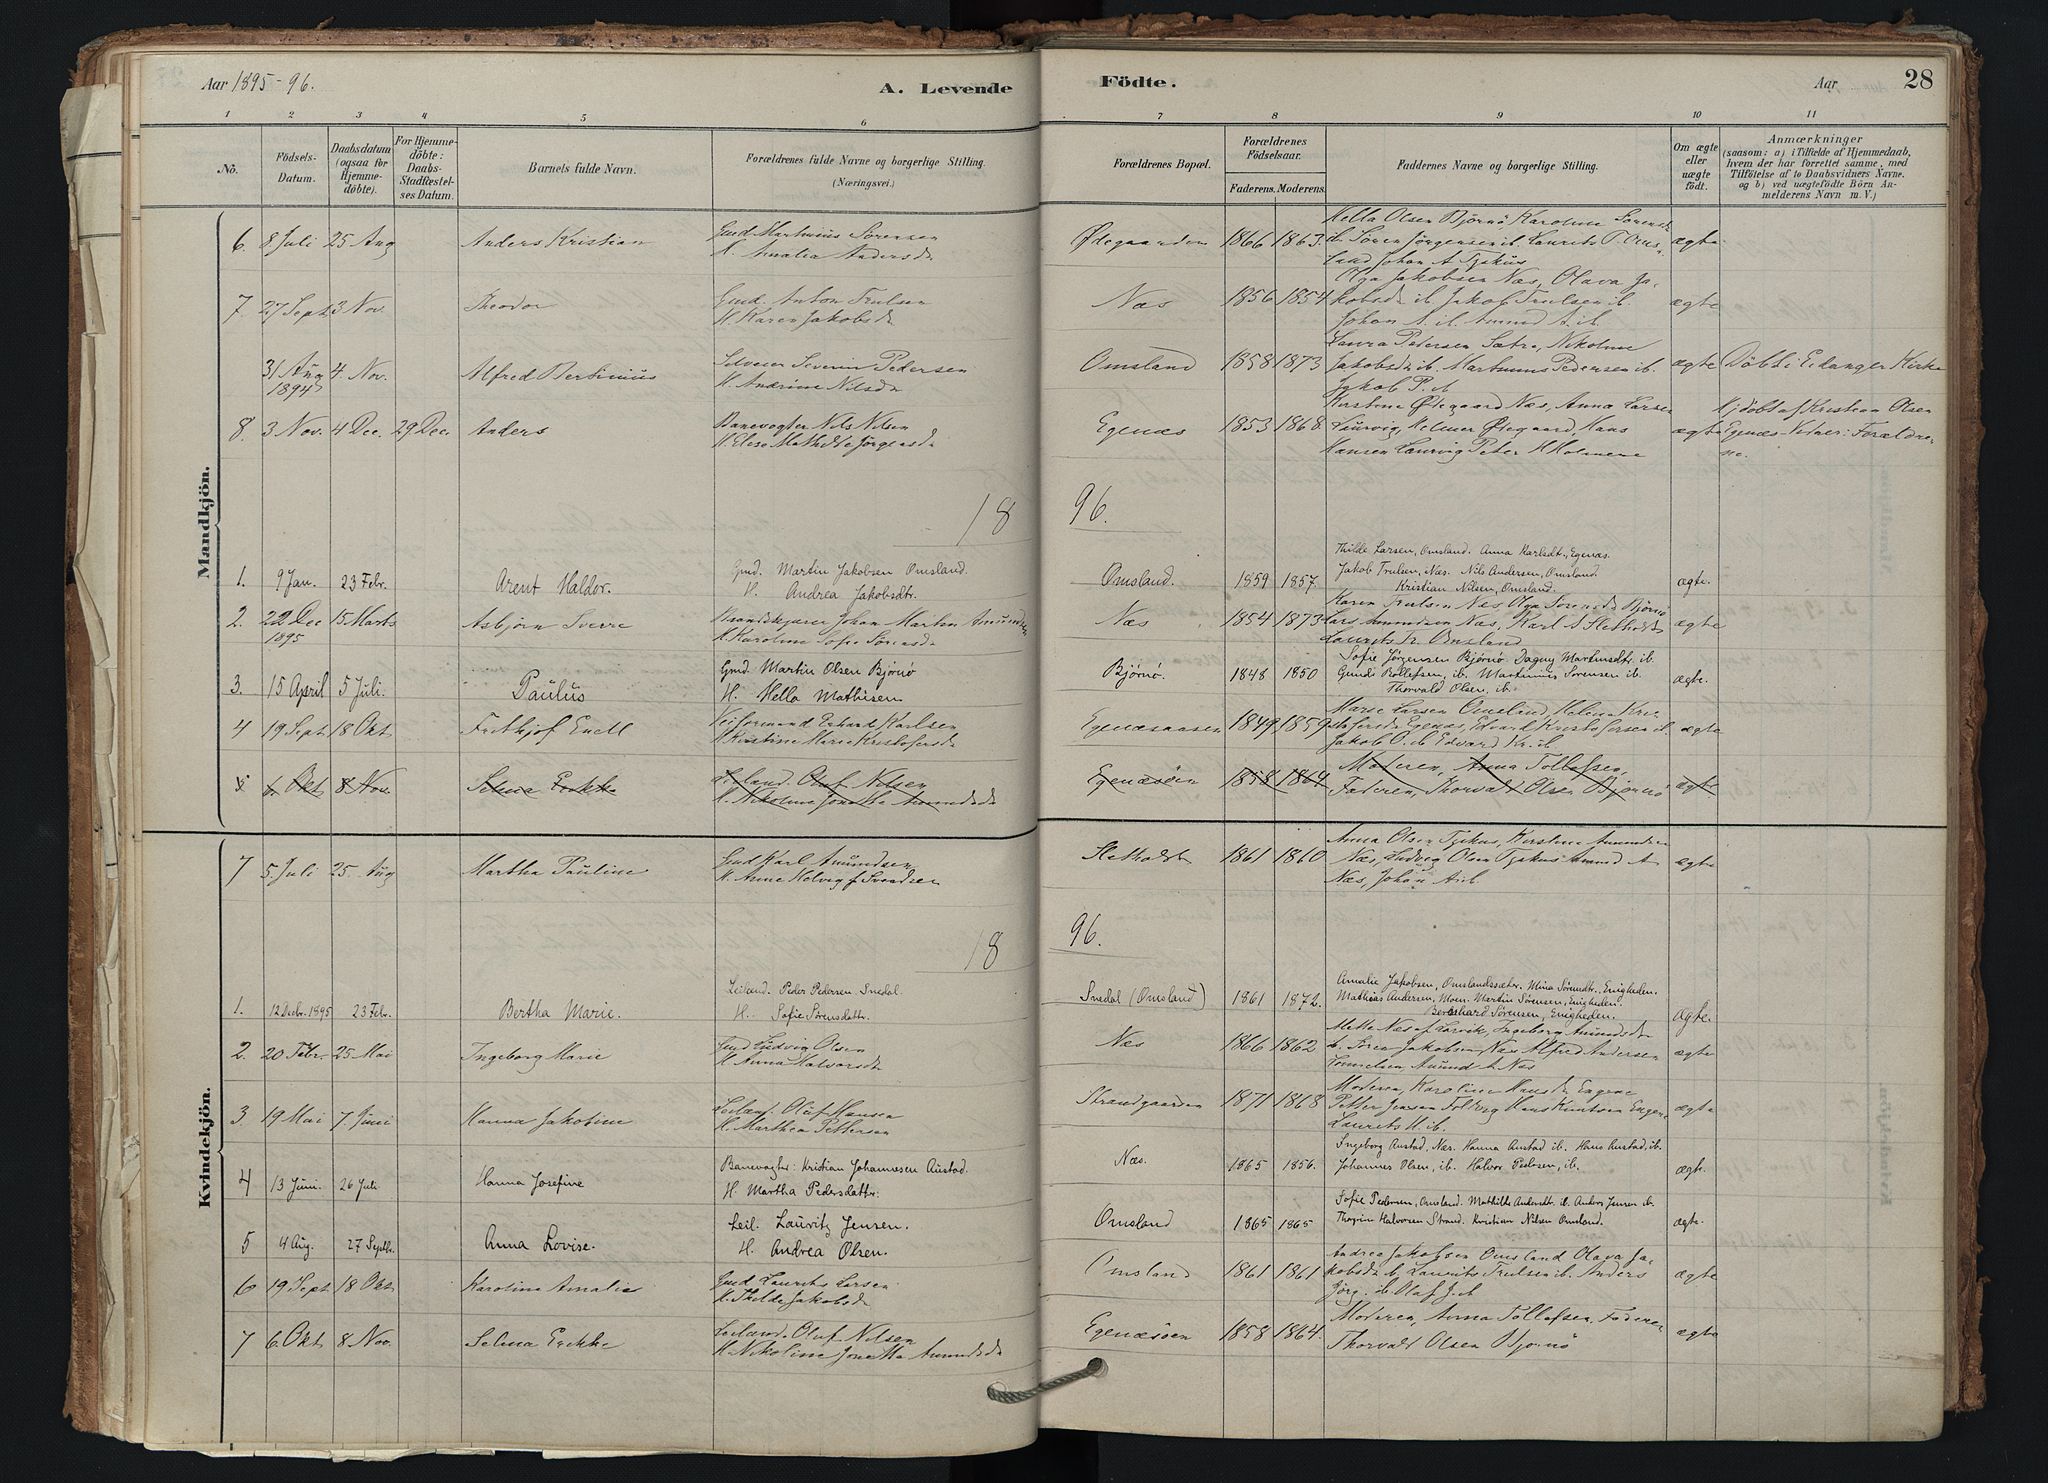 Aar 1895-96.
A. Levende
Födte.
Aar
28
1 2 3 4 5 6 7 8 9 10 11
No.
Födsels-
Datum.
Daabsdatum
(ogsaa for
Hjemme-
döbte).
For Hjemme-
döbte:
Daabs-
Stadfæstel-
ses Datum.
Barnets fulde Navn.
Forældrenes fulde Navne og borgerlige Stilling.
(Næringsvei.)
Forældrenes Bopæl.
Forældrenes
Födselsaar.
Faderens. Moderens.
Faddernes Navne og borgerlige Stilling.
Om ægte
eller
uægte
født.
Anmærkninger
(saasom: a) i Tilfælde af Hjemmedaab,
hvem der har forrettet samme, med
Tilföielse af to Daabsvidners Navne.
og b) ved uægtefödte Börn An-
melderens Navn m. V.)
Mandkjön.
6. 8 Juli 25 Aug Anders Kristian
Gmd Martinius Sörensen
H. Amalia Andersd
Ødegaarden 1866 1863.
Hella Olsen Bjørnø Karoline Sørensd
ib. Søren Jørgensen ib. Laurits T. Oms-
land Johan A Tyskus
ægte
7. 27 Sept 3 Nov. Theodor
Gmd. Anton Trulsen
H. Karen Jakobsd
Næs 1856 1854
Olga Jakobsen Næs, Olava Ja-
kobsdt ib. Jakob Trulsen ib.
Johan A. ib. Amund A. ib.
ægte
31 Aug
1894
4. Nov. Alfred Bertinius
Severin Pedersen
H. Andrine Nilsd
Omsland 1858 1873
Laura Pedersen Sætre, Nikoline
Jakobsdt ib. Martinius Pedersen ib.
Jakob P. ib
ægte
Døbt i Eidanger Kirke
8. 3 Nov. 4 Dec. 29 Dec. Anders
Banevogter Nils Nilsen
H. Elise Mathilde Jørgensd
Egenæs 1853 1868.
Kirstine Ødegaard Næs, Anna Larsen
Laurvig, Helmer Ødegaard, Hans
Hansen Laurvig Peter H Holmene
ægte
Hjdøbt af Kristian Olsen
Egenæs Vidner: Forældre-
ne.
18 96.
1. 9 Jan. 23 Febr. Arent Haldor.
Gmd. Martin Jakobsen Omsland.
H. Andrea Jakobsdtr.
Omsland. 1859 1857.
Thilde Larsen, Omsland. Anna Karlsdt., Egenæs.
Jakob Trulsen, Næs. Nils Andersen, Omsland.
Kristian Nilsen, Omsland.
ægte.
2. 22 Dec
1895
15 Marts Asbjørn Sverre
Johan Martin Amundsen
H. Karoline Sofie Sørensd
Næs 1854 1873
Karen Trulsen Næs Olga Sørensdt Bjørnø
Lars Amundsen Næs, Karl A Sletholdt
Laurits Tr. Omsland
ægte
3. 15 April 5 Juli. Paulus
Gmd. Martin Olsen Bjørnø
H. Hella Mathisen
Bjørnø. 1848 1850
Sofie Jørgensen Bjørnø Dagny Martinsdtr. ib.
Gundi Rollefsen, ib. Martinius Sørensen ib.
Thorvald Olsen, ib.
ægte.
4 19 Sept 18 Okt Frithjof Enell
Veiformand Erhard Karlsen
H. Kristine Marie Kristofersd
Egenæsaasen 1849 1859
Marie Larsen Omsland, Helene Kri-
stofersdt Egenæs, Edvard Kristofersen ib.
Jakob O. ib Edvard Kr. ib.
ægte
6. Okt 8 Nov. Selma Erikka
Leiland. Oluf Nilsen
H. Nikoline Jonetta Amundsd
Egenæsøen 1858 1864
Moderen, Anna Tollefsen,
Faderen, Thorvald Olsen Bjørnø
ægte
Kvindekjön.
7 5 Juli 25 Aug Martha Pauline
Gmd Karl Amundsen
H. Anne Helvig f Svendsen
Sletholdt 1861 1860
Anna Olsen Tyskus, Kirstine Amundsen
Næs, Ludvig Olsen Tyskus Amund A
Næs, Johan A ib.
ægte
18 96.
1. 12 Decbr. 1895 23 Febr. Bertha Marie.
Leiland. Peder Pedersen Snedal
H. Sofie Sørensdattr.
Snedal (Omsland) 1861 1872.
Amalie Jakobsen, Omslandssæter. Mina Sørensdtr., Enigheden.
Mathias Andersen, Moen. Martin Sørensen, Enigheden.
Bernhard Sørensen, Enigheden.
ægte.
2. 20 Febr. 25 Mai Ingeborg Marie
Gmd Ludvig Olsen
H. Anna Halvorsdt
Næs 1866 1862
Mette Næs af Larvik, Ingeborg Amundsdt
ib. Søren Jakobsen Næs Alfred Andersen
Amund A Næs
ægte
3 19 Mai 7 Juni Hanna Jakobine
Leilænd. Oluf Hansen
H. Marthea Pettersen
Strandgaarden 1871 1868
Moderen, Karoline Hansdt Engene
Petter Jensen Hans Knutsen Engene
Laurits H. ib.
ægte
4 13 Juni. 26 Juli Hanna Josefine
Banevogter: Kristian Johannesen Austad.
H. Martha Pedersdattr:
Næs. 1865 1856.
Ingeborg Austad, Næs. Hanna Austad ib. Hans Austad, ib.
Johannes Olsen, ib. Halvor Pedersen, ib.
ægte.
5 4 Aug. 27 Septbr. Anna Lovise.
Leil. Lauritz Jensen.
H. Andrea Olsen.
Omsland 1865 1865
Sofie Pedersen, Omsland. Mathilde Andersdt. ib. Anders Jensen ib.
Halvorsen Strand. Kristian Nilsen Omsland.
ægte.
6 19 Sept 18 Okt Karoline Amalie
Gmd Laurits Larsen
H. Thilde Jakobsd
Omsland 1861 1861
Andrea Jakobsen Omsland Olava Ja-
kobsdt ib. Laurits Trulsen ib. Anders
Jörg. ib. Olaf J. ib
ægte
7 6 Okt 8 Nov. Selma Erikke
Leilænd. Oluf Nilsen
H. Nikoline Jonetta Amundsd
Egenæsøen 1858 1864.
Moderen, Anna Tollefsen, Faderen
Thorvald Olsen Bjørnø
ægte